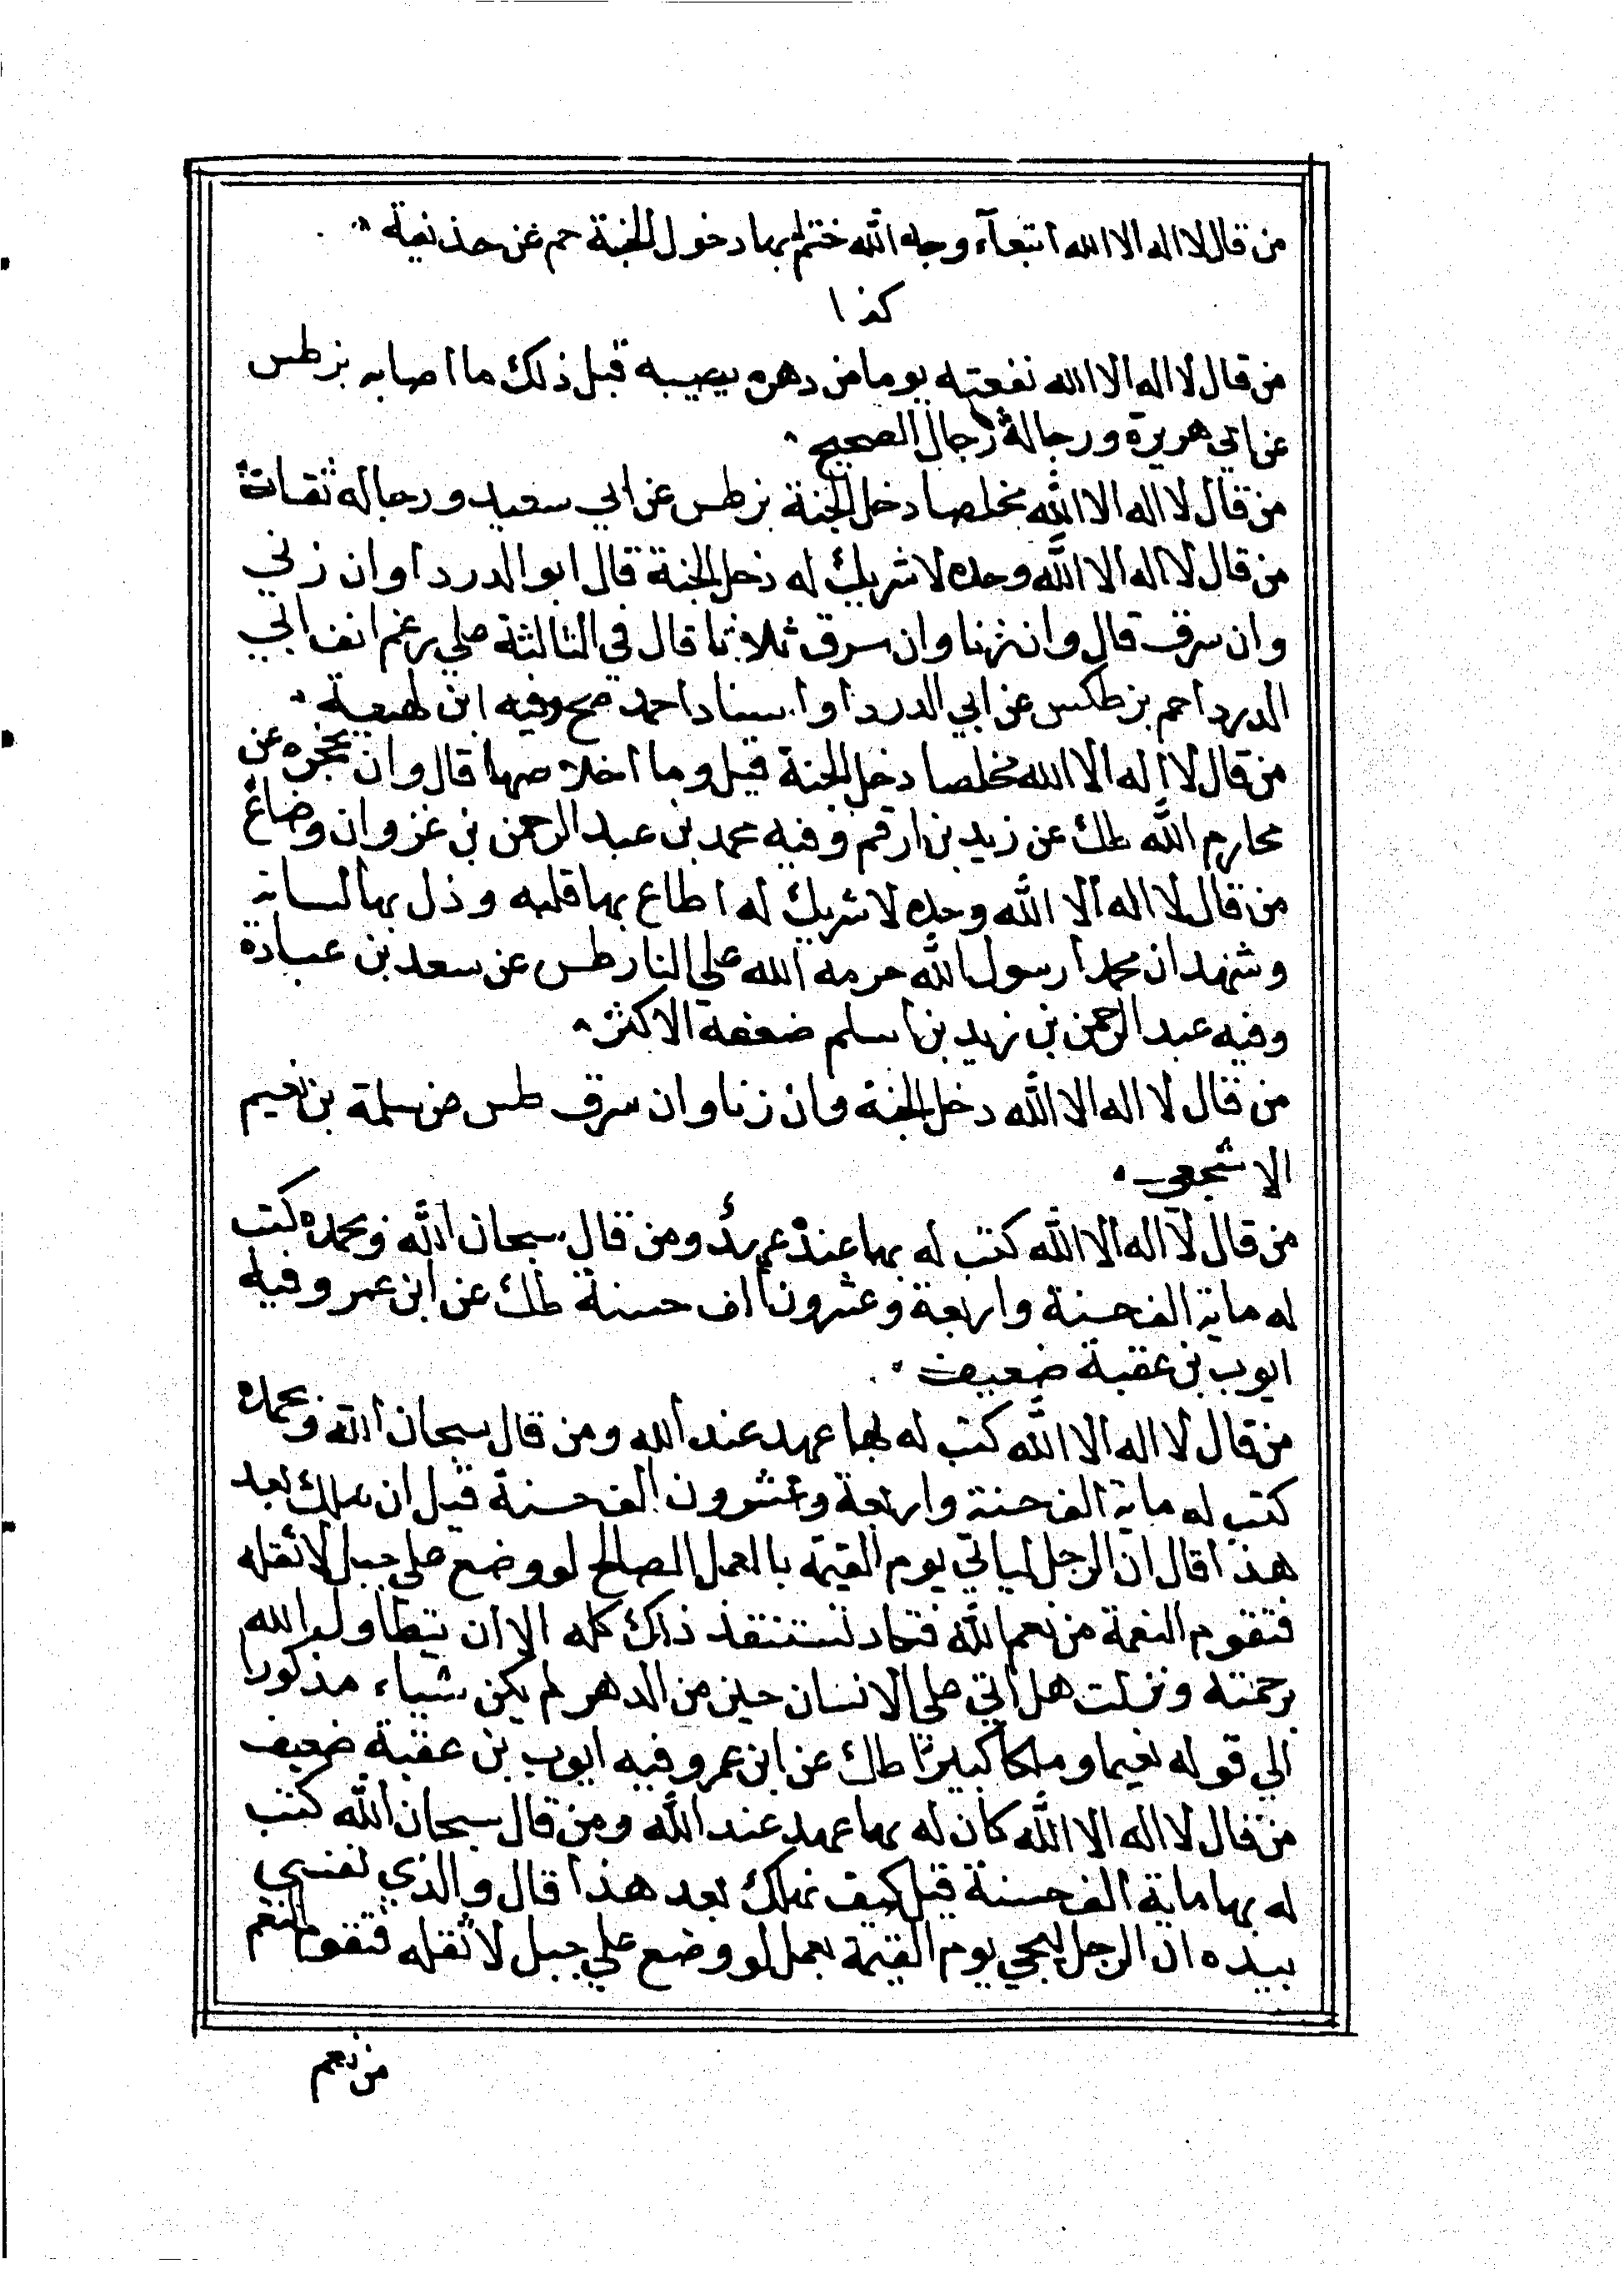 من قال لا اله الا الله ابتغآء وجه الله ختم لها بها دخول الجنة حم عن حذيفة
كذا
من قال لا اله الا الله نفعته يوما من دهره يصيبه قبل ذلك ما اصابه بز طس
عن ابي هريرة ورجالة رجال الصحيح
من قال لا اله الا الله مخلصا دخل الجنة بز طس عن ابي سعيد ورجاله ثقات
من قال لا اله الا الله وحده لا شريك له دخل الجنة قال ابو الدردا وان زني
وان سرق قال وان زنا وان سرق ثلاثا قال في الثالثة علي رغم انف ابي
الدردا حم بز طكس عن ابي الدردا واسناد احمد صح وفيه ابن لهيعة
من قال لا اله الا الله مخلصا دخل الجنة قيل وما اخلاصها قال وان تحجزه عن
محارم الله طك عن زيد بن ارقم وفيه محمد بن عبد الرحمن بن غزوان وضاع
من قال لا اله الا الله وحده لا شريك له اطاع بها قلبه وذل بها لسانه
وشهد ان محمدا رسول الله حرمه الله علي النار طس عن سعد بن عبادة
وفيه عبد الرحمن بن زيد بن اسلم ضعفه الاكثر
من قال لا اله الا الله دخل الجنة وان زنا وان سرق طس عن سلمة بن نعيم
الاشجعي
من قال لا اله الا الله كتب له بها عند ومن قال سبحان الله وبحمده كتب
له ماية الف حسنة واربعة وعشرون الف حسنة طك عن ابن عمر وفيه
ايوب بن عقبة ضعيف
من قال لا اله الا الله كتب له بها عهد عند الله ومن قال سبحان الله وبحمده
كتب له ماية الف حسنة واربعة وعشرون الف حسنة قيل ان نهلك بعد
هذا قال ان الرجل لياتي يوم القيمة بالعمل الصالح لو وضع علي جبل لاثقله
فتقوم النعمة من نعم الله فتكاد تستنفذ ذلك كله الا ان يتطاول الله
برحمته ونزلت هل اتي علي الانسان حين من الدهر لم يكن شياء مذكورا
الي قوله نعيما وملكا كبيرا طك عن ابن عمر وفيه ايوب بن عقبة ضعيف
من قال لا اله الا الله كان له بها عهد عند الله ومن قال سبحان الله كتب
له بها ماية الف حسنة قيل كيف نهلك بعد هذا قال والذي نفسي
بيده ان الرجل ليجي يوم القيمة بعمل لو وضع علي جبل لاثقله فتقوم النعم
من نعم